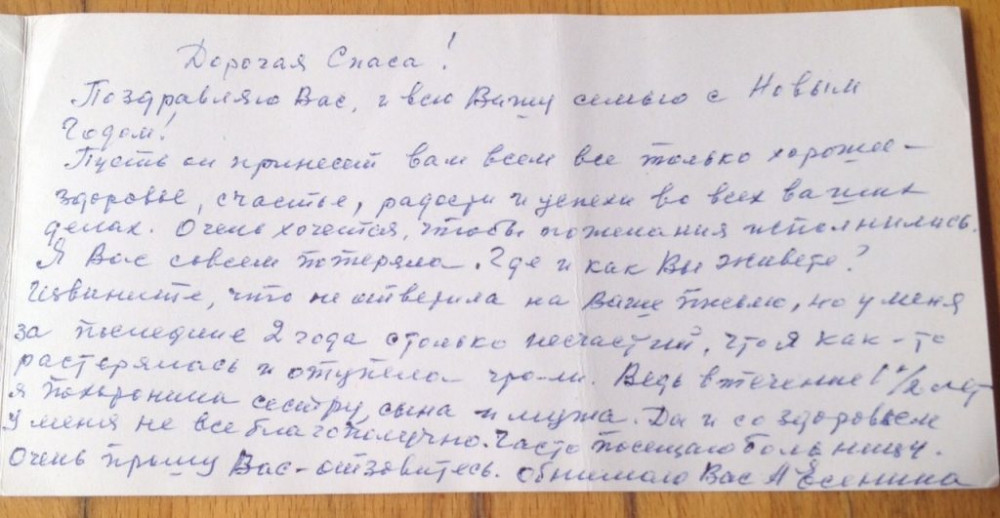 Дорогая Спаса!
Поздравляю Вас, и всю Вашу семью с Новым
Годом!
Пусть он принесет вам всем все только хорошее –
здоровье, счастье, радости и успехи во всех ваших
делах. Очень хочется, чтобы пожелания исполнились.
Я Вас совсем потеряла. Где и как Вы живете?
Извините, что не ответила на Ваше письмо, но у меня
за последние 2 года столько несчастий, что я как-то
растерялась и отупела. Ведь в течение 1 1/2 лет
я похоронила сестру, сына и мужа. Да и со здоровьем
у меня не все благополучно. Часто посещаю больницу.
Очень прошу Вас – отзовитесь. Обнимаю Вас А Есенина